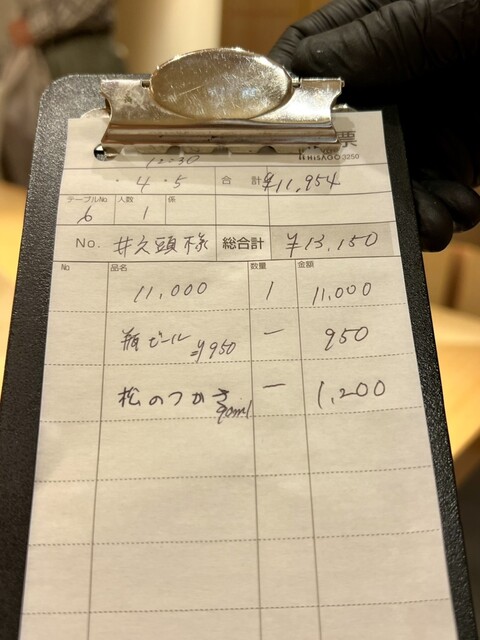 票
HISAGO 3350
12:30
・4・5 合計 ¥11,954
テーブルNo. 人数 係
6 1
No. 井之頭様 総合計 ¥13,150
No. 品名 数量 金額
11,000 1 11,000
瓶ビール ¥950 一 950
松のつかさ 90ml 一 1,200